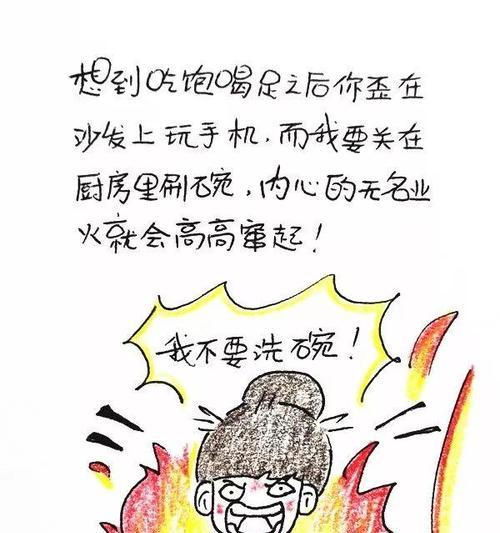 想到吃饱喝足之后你歪在
沙发上玩手机,而我要关在
厨房里刷碗,内心的无名业
火就会高高窜起!
我不要洗碗!